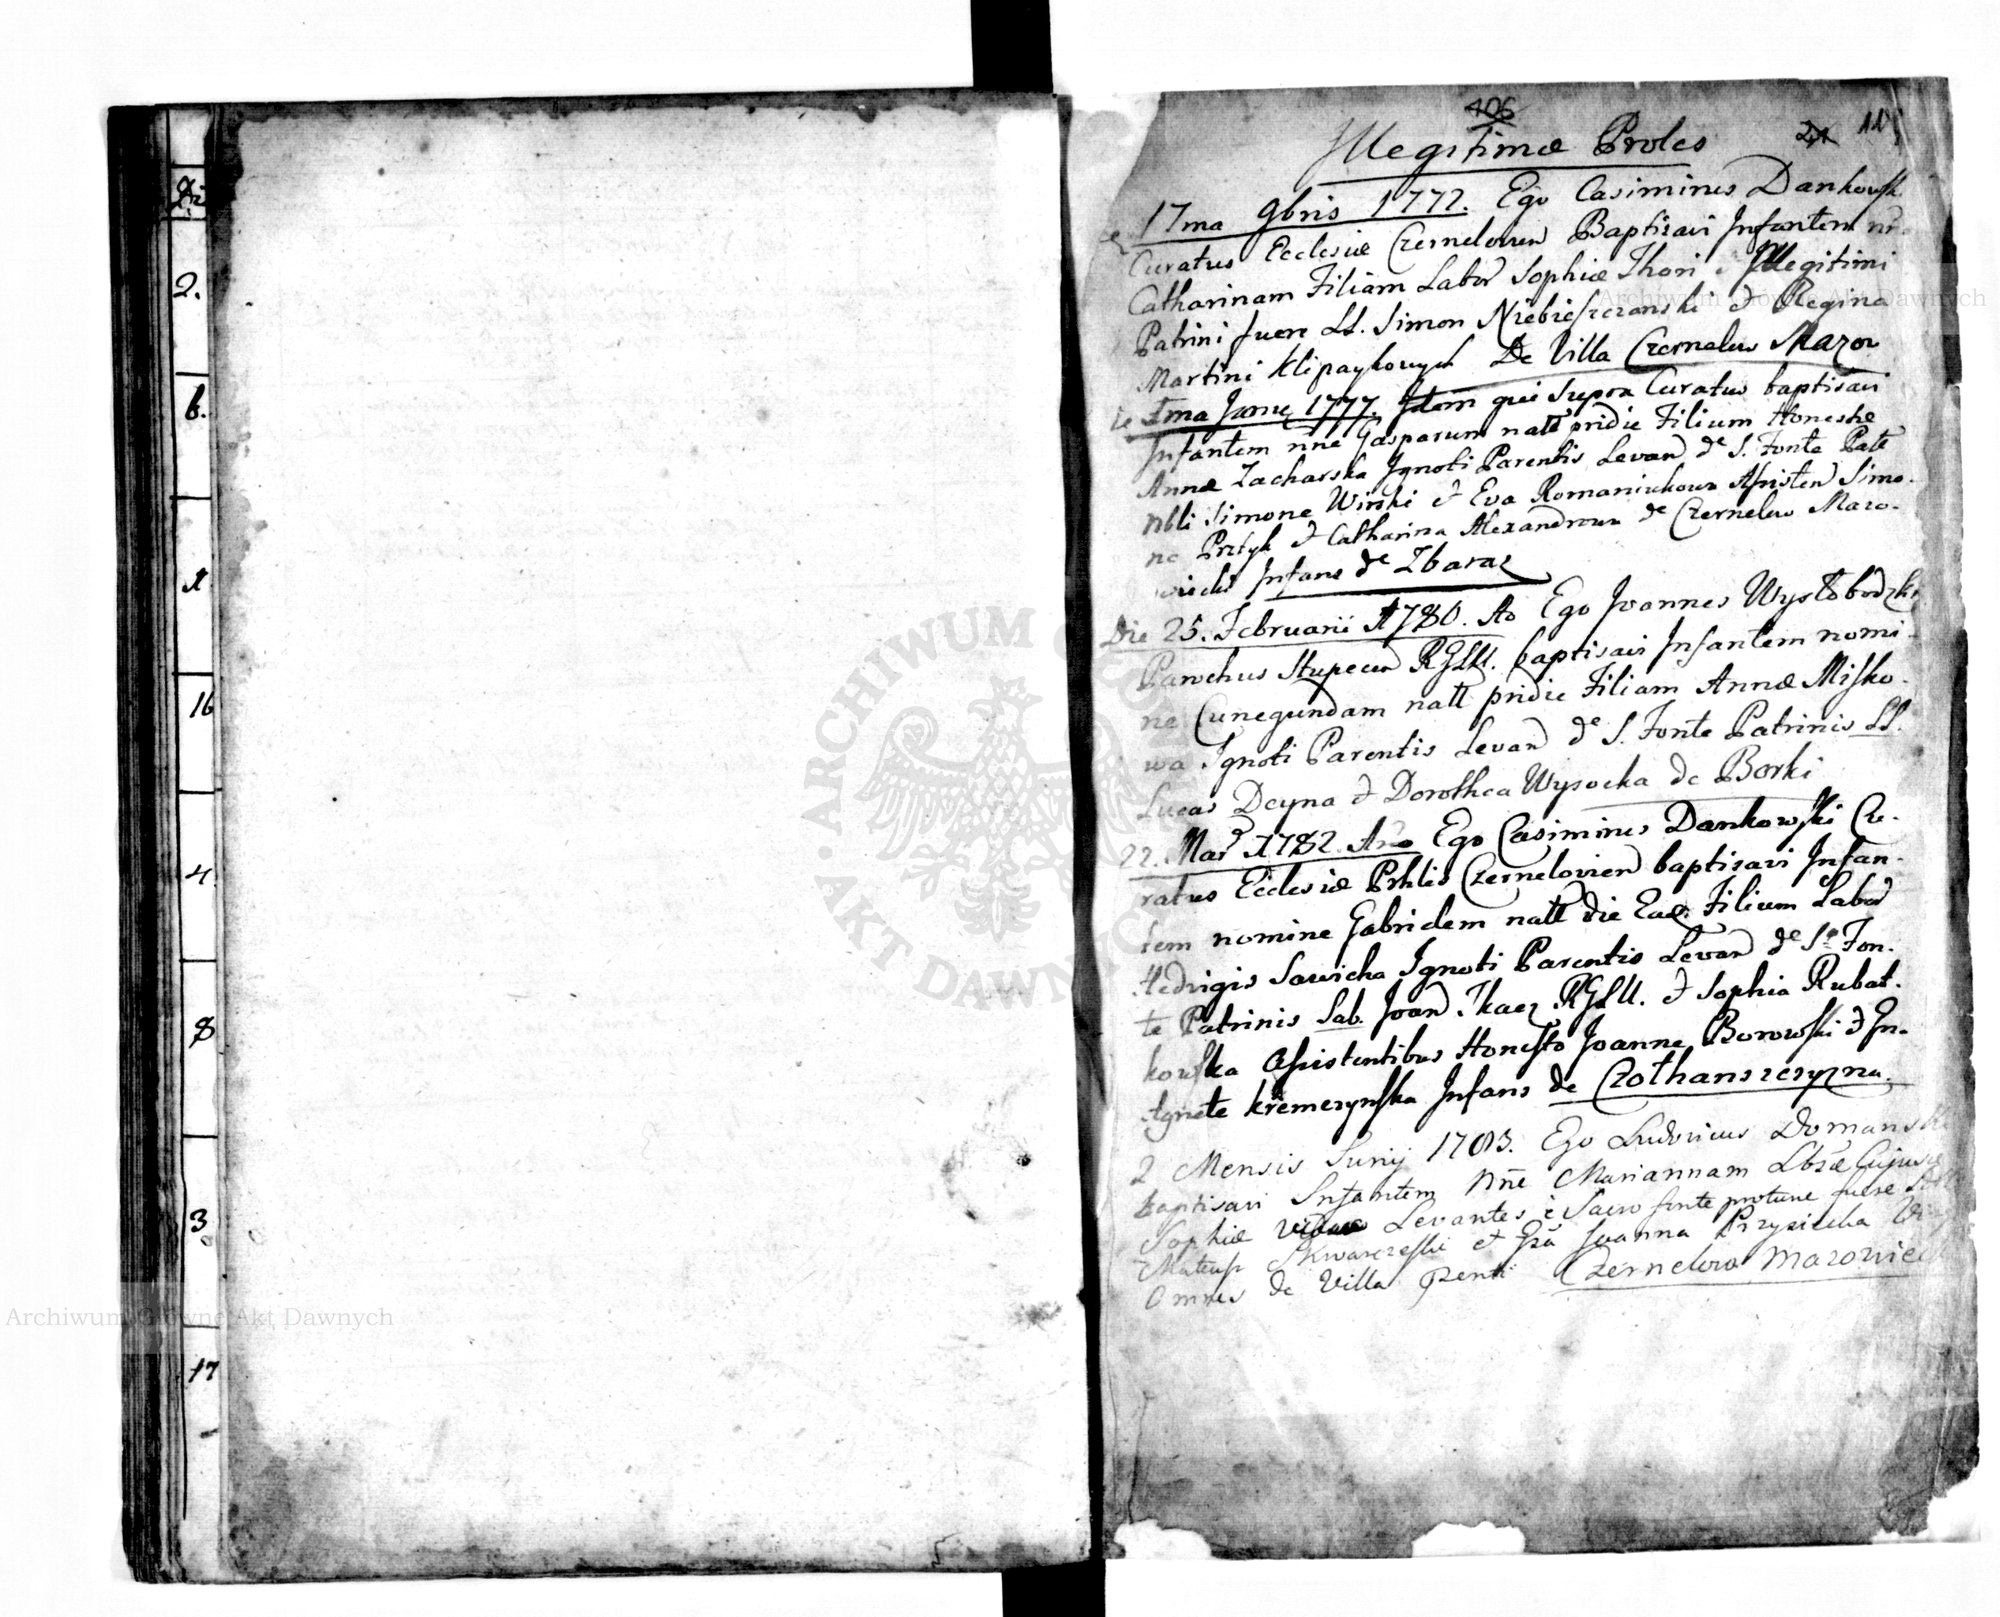 Di
2.
6.
1
16
4
8
3
17
406
24 115
Illegitimæ Proles
17ma 9bris 1772. Ego Casimirus Dankowsk
Curatus Ecclesiæ Czernelovien Baptisavi Infantem
Catharinam Filiam Labor Sophiæ Thori Illegitimi
Patrini fuere LL. Simon Niebieszczanski et Regina
Martini De Villa Czernelow Mazov
1777. Idem qui supra Curatus baptisavi
Infantem nne Gasparum natt pridie Filium Honestæ
Annæ Zacharska Ignoti Parentis Levan de S. Fonte Patr
Nbli Simone Winski et Eva Romaniukowa Assisten Simo-
ne et Catharina Alexandrowa de Czernelow Mazo-
wiecki Infans de Zbaraz
Die 25. Februarii 1780. Ao Ego Joannes Wysłobodzki
Parochus Stupecen RGLU. baptisavi Infantem nomi-
ne Cunegundam natt pridie Filiam Annæ Misko-
wa Ignoti Parentis Levan de S. Fonte Patrinis LL.
Lucas Deyna et Dorothea Wysocka de Borki
22. Mar 1782 Ano Ego Casimirus Dankowski Cu-
ratus Ecclesiæ Prhlis Czernelovien baptisavi Infan-
tem nomine Gabrielem natt die Ead. Filium Labor
Hedvigis Sawicka Ignoti Parentis Levan de S. Fon-
te Patrinis Lab. Joan Tkacz RGLU. et Sophia Rubat-
kowska Assistentibus Honesto Joanne Borowski et
Agnete Kremezynska Infans de Czothanszczyzna.
2 Mensis Junij 1783. Ego Ludovicus Domanski
baptisavi Infantem Nne Mariannam
Sophiæ Levantes e Sacro fonte protunc fuere
Mateusz Skwarczeski et Gsa Joanna Przysiecka
Omnes de Villa Czernelow Mazowiec
Archiwum Główne Akt Dawnych
Archiwum Główne Akt Dawnych
ARCHIWUM GŁÓWNE AKT DAWNYCH